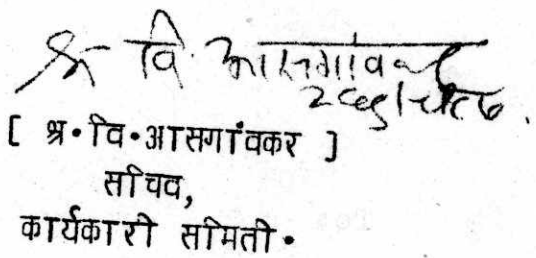 श्र वि. आसगांवकर
[ श्र.वि.आसगांवकर ]
सचिव,
कार्यकारी समिती.